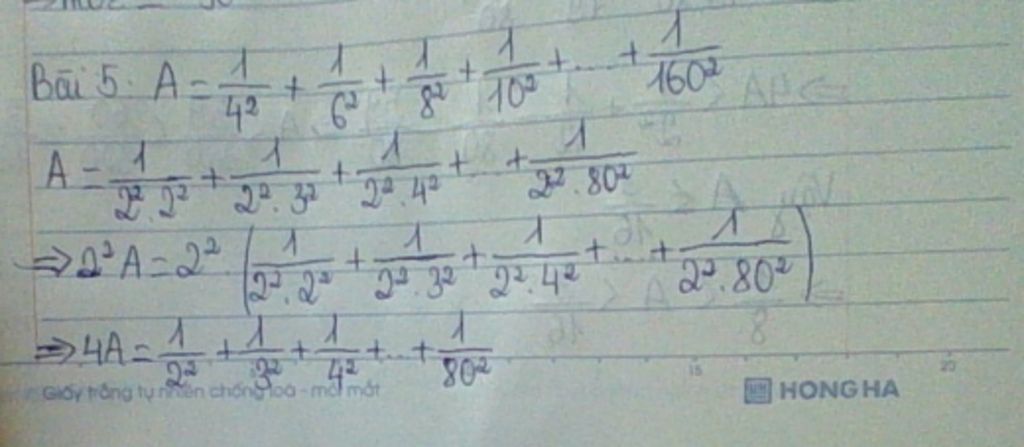 Bài 5: A = 1/4² + 1/6² + 1/8² + 1/10² + ... + 1/160²
A = 1/2².2² + 1/2².3² + 1/2².4² + ... + 1/2².80²
⇒ 2²A = 2².(1/2².2² + 1/2².3² + 1/2².4² + ... + 1/2².80²)
⇒ 4A = 1/2² + 1/3² + 1/4² + ... + 1/80²
15 20
Giấy trắng tự nhiên chống loá - mỏi mắt HONG HA